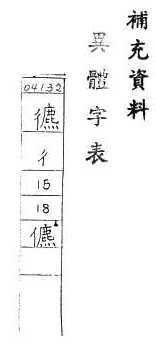 補充資料
異體字表
04132
彳
15
18
儦